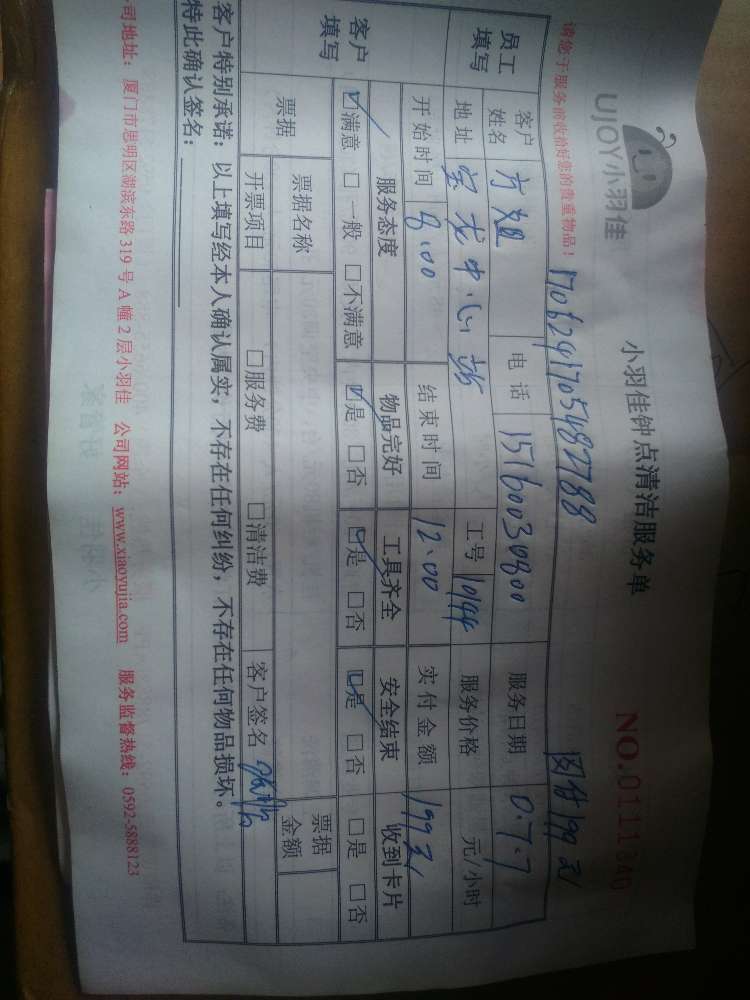 UJOY小羽佳
小羽佳钟点清洁服务单
NO.0111340
请您于服务前收拾好您的贵重物品！
1706241705482788
网付199元
员工填写
客户姓名 方姐 电话 15160030800 服务日期 0.7.7
地址 宝龙中心 工号 10144 服务价格 元/小时
开始时间 8.00 结束时间 12.00 实付金额 199元
客户填写
服务态度 物品完好 工具齐全 安全结束 收到卡片
☑满意 □一般 □不满意 ☑是 □否 ☑是 □否 ☑是 □否 □是 □否
票据 票据名称 票据金额
开票项目 □服务费 □清洁费 客户签名
客户特别承诺：以上填写经本人确认属实，不存在任何纠纷，不存在任何物品损坏。
特此确认签名：
司地址：厦门市思明区湖滨东路 319 号 A 幢 2 层小羽佳 公司网站：www.xiaoyujia.com 服务监督热线：0592-5888123